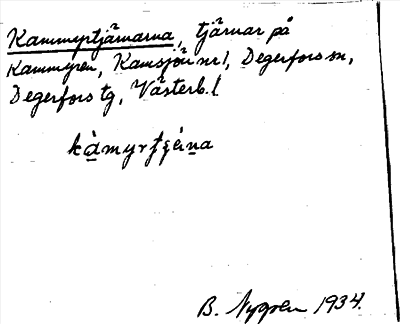 Kammyrtjärnarna, tjärnar på
Kammyren, Kamsjön nr 1, Degerfors sn,
Degerfors tg, Västerb. l.
B. Nygren 1934.